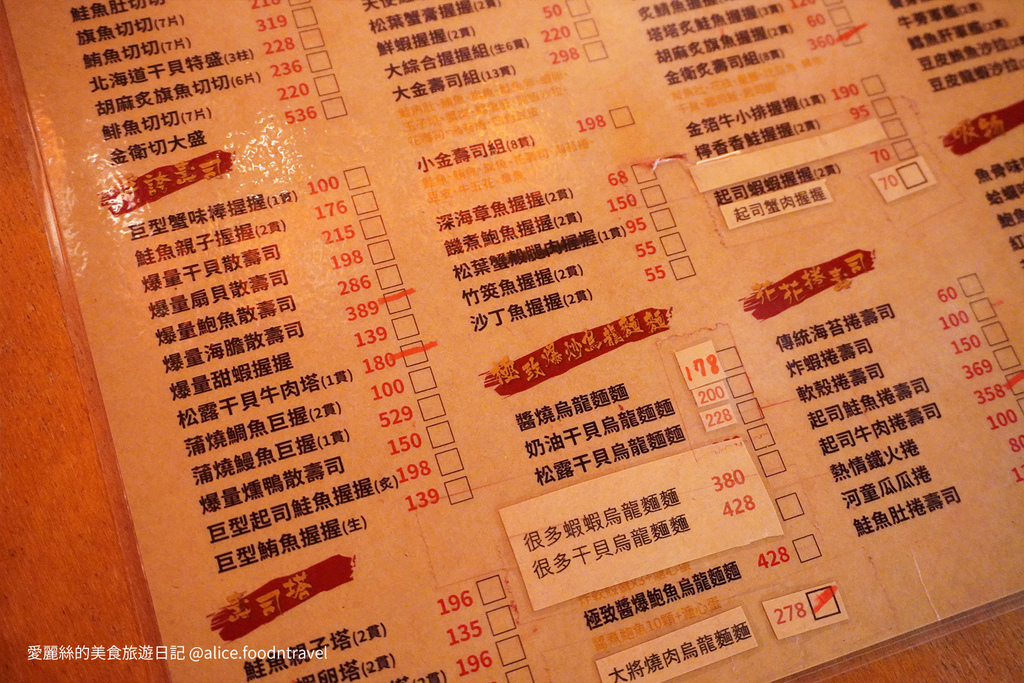 鮭魚肚切切 218
旗魚切切(7片) 319
鮪魚切切(7片) 228
北海道干貝特盛(3柱) 236
胡麻炙旗魚切切(6片) 220
鯡魚切切(7片) 536
金衛切大盛
壽司
巨型蟹味棒握握(1貫) 100
鮭魚親子握握(2貫) 176
爆量干貝散壽司 215
爆量扇貝散壽司 198
爆量鮑魚散壽司 286
爆量海膽散壽司 389
爆量甜蝦握握 139
松露干貝牛肉塔(1貫) 180
蒲燒鯛魚巨握(2貫) 100
蒲燒鰻魚巨握(1貫) 529
爆量燻鴨散壽司 150
巨型起司鮭魚握握(炙) 198
巨型鮪魚握握(生) 139
壽司塔
鮭魚親子塔(2貫) 196
蝦卵塔(2貫) 135
196
松葉蟹膏握握(2貫)
鮮蝦握握(2貫) 50
大綜合握握組(生6貫) 220
大金壽司組(13貫) 298
小金壽司組(8貫) 198
深海章魚握握(2貫) 68
饑煮鮑魚握握(2貫) 150
松葉蟹 (1貫) 95
竹筴魚握握(2貫) 55
沙丁魚握握(2貫) 55
極致爆炒烏龍麵麵
醬燒烏龍麵麵 178
奶油干貝烏龍麵麵 200
松露干貝烏龍麵麵 228
很多蝦蝦烏龍麵麵 380
很多干貝烏龍麵麵 428
極致醬爆鮑魚烏龍麵麵 428
大將燒肉烏龍麵麵 278
炙鯖魚握握(2貫)
塔塔炙鮭魚握握(3貫) 120
胡麻炙旗魚握握(2貫) 60
金衛炙壽司組(8貫) 360
金箔牛小排握握(1貫) 190
檸香香鮭握握(2貫) 95
起司蝦蝦握握(2貫) 70
起司蟹肉握握 70
花花捲壽司
傳統海苔捲壽司 60
炸蝦捲壽司 100
軟殼捲壽司 150
起司鮭魚捲壽司 369
起司牛肉捲壽司 358
熱情鐵火捲 100
河童瓜瓜捲 80
鮭魚肚捲壽司
牛旁軍艦(2貫)
鱈魚肝軍艦(2貫)
豆皮鮪魚沙拉(2
豆皮龍蝦沙拉(
吸物
魚骨味
蛤蠣
鮑魚
紅
愛麗絲的美食旅遊日記 @alice.foodntravel